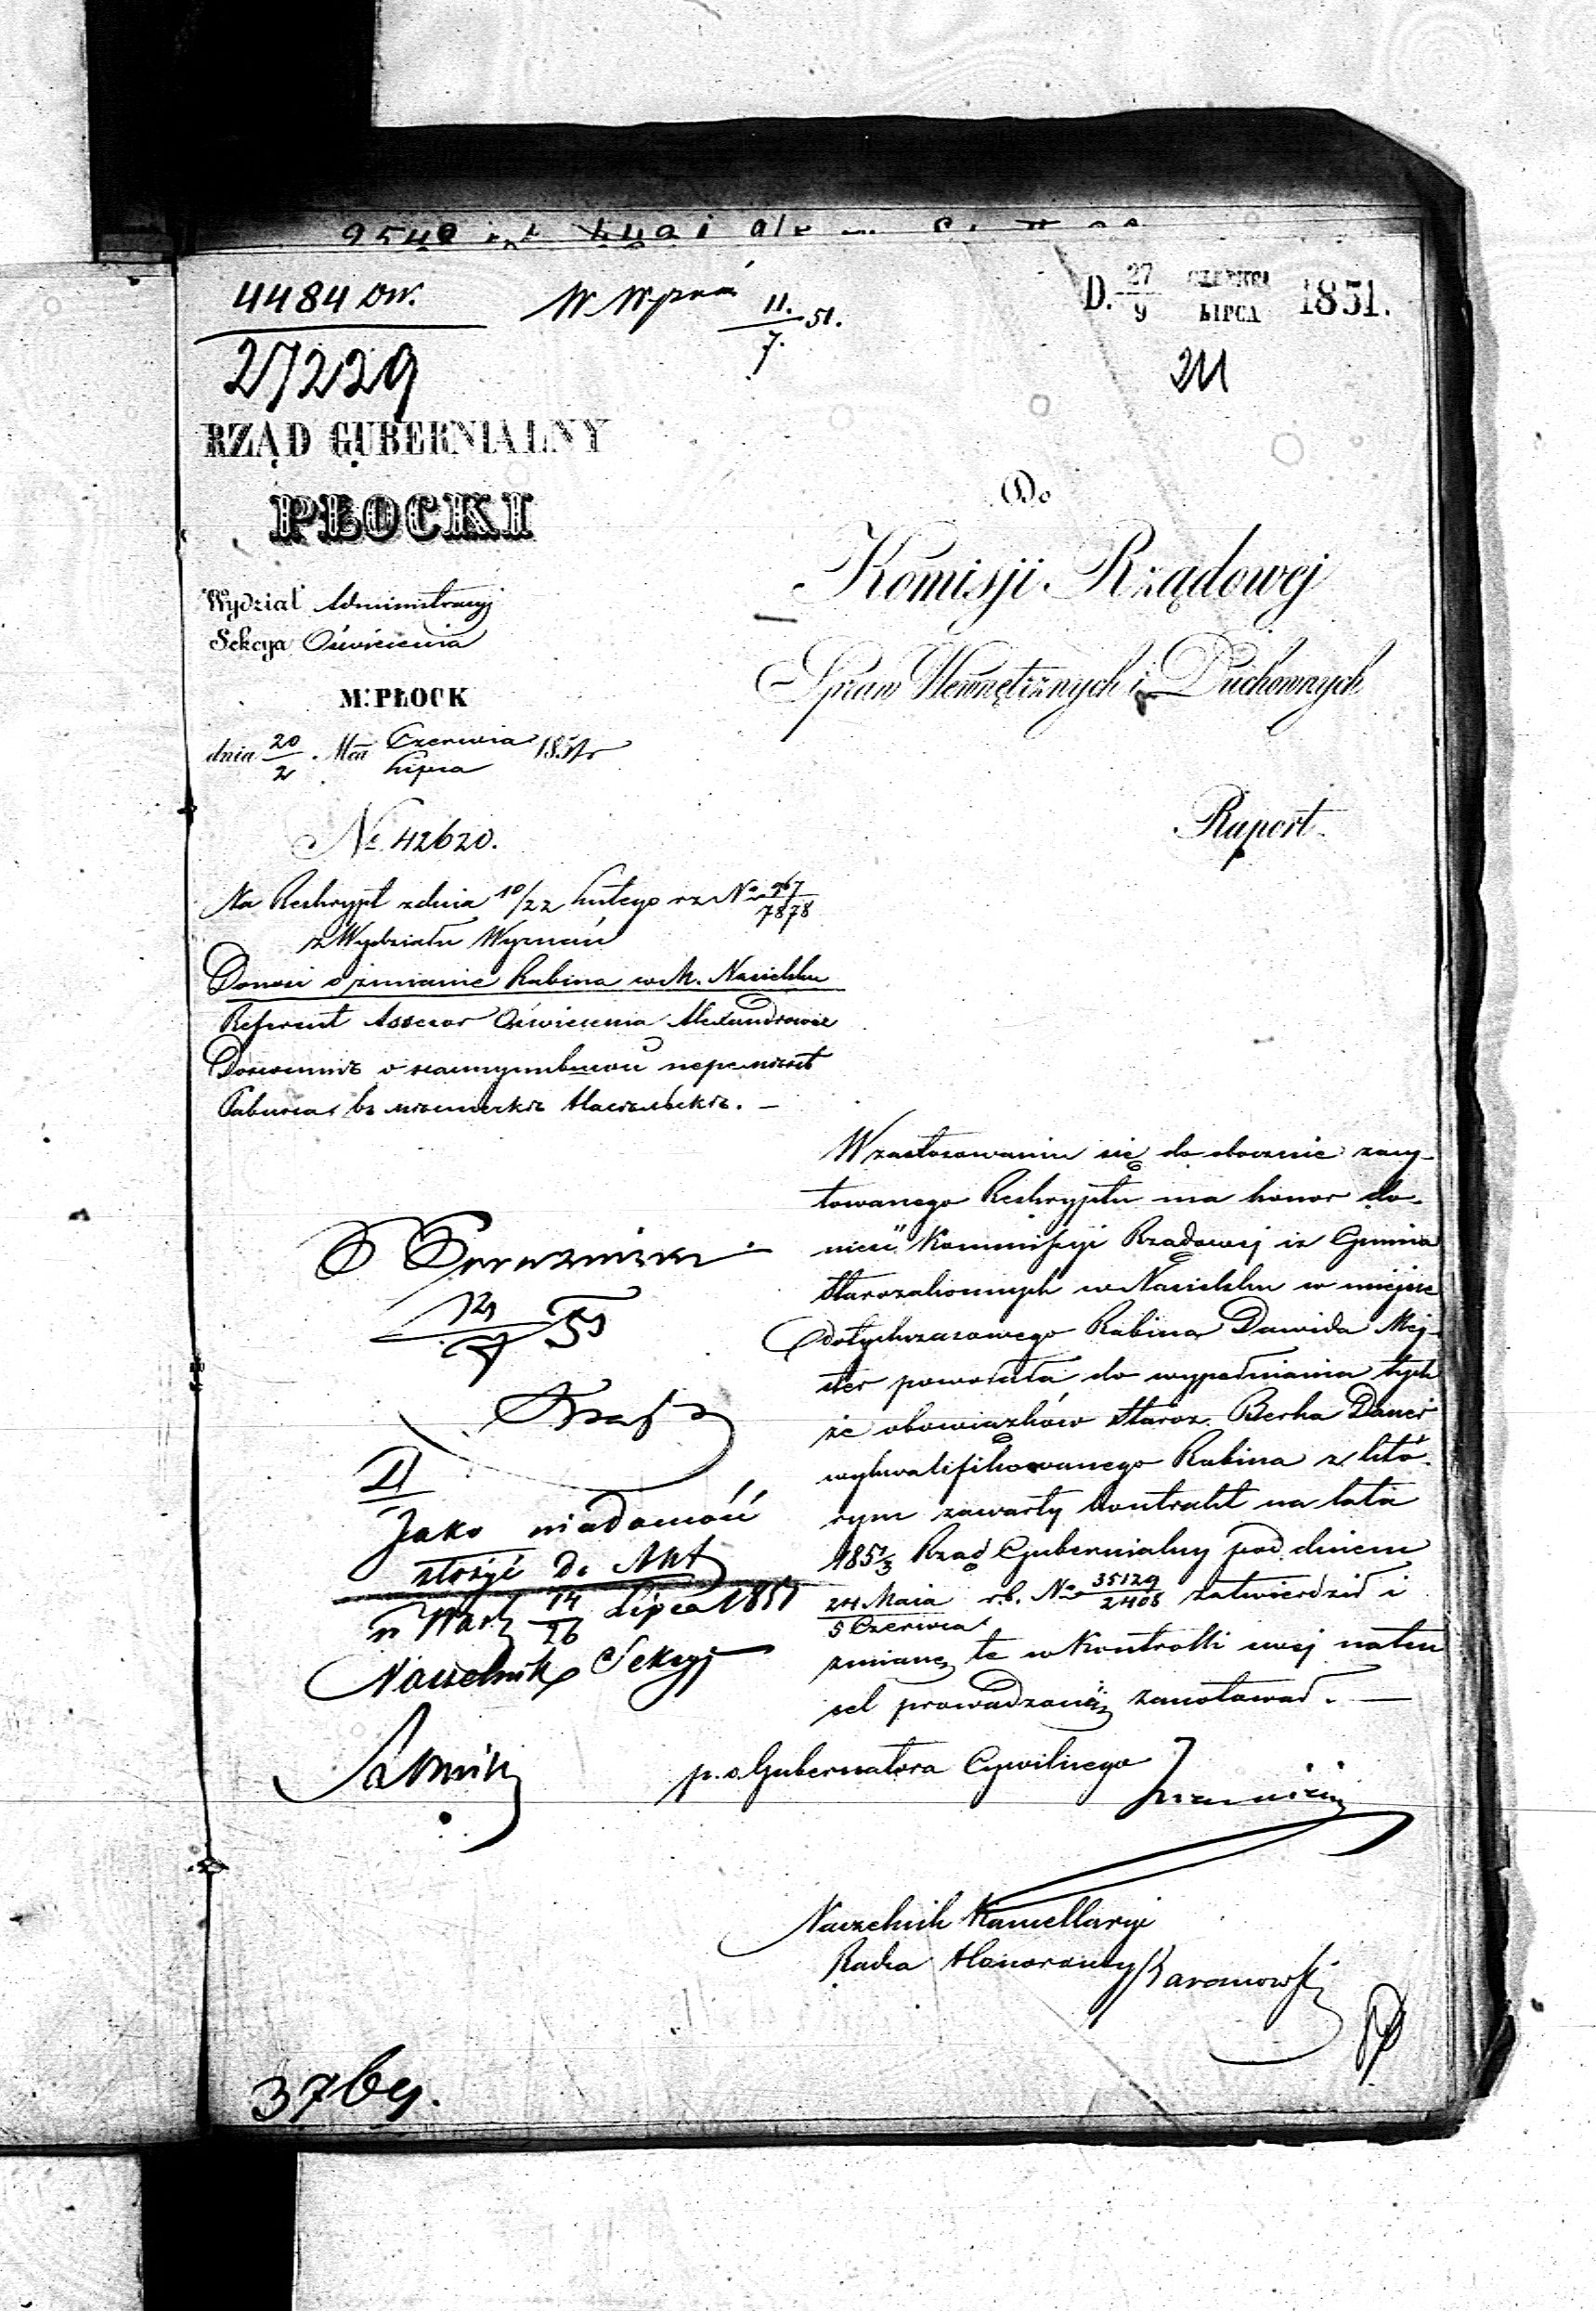 4484 DW.
27229
W Wyznań 11./7. 51.
D. 27/9 CZERWCA/LIPCA 1851.
211
RZĄD GUBERNIALNY
PŁOCKI
Wydział Administracyj
Sekcya Oświecenia
M: PŁOCK
dnia 20/2 Mca Czerwca/Lipca 1851 r
№ 42620.
Na Reskrypt z dnia 10/22 Lutego rz №  /7878
z Wydziału Wyznań
Donosi o zmianie Rabina w M. Nasielsku
Referent Assessor Oświecenia Alexandrowicz
Раввина въ мѣстечкѣ Насельскѣ. —
Do
Komisji Rządowej
Spraw Wewnętrznych i Duchownych
Raport.
W zastosowaniu się do obocznie zacy-
towanego Reskryptu ma honor do-
nieść Kommissyi Rządowej iż Gmina
Starozakonnych w Nasielsku w miejsce
dotychczasowego Rabina Dawida Mej-
ster powołała do wypełniania tych
że obowiązków Staroz. Berka Daner
wykwalifikowanego Rabina z któ-
rym zawarty kontrakt na lata
1851/3 Rząd Gubernialny pod dniem
24 Maia/5 Czerwca r.b. № 35129/2406 zatwierdził i
zmianę tę w Kontrolli swej na ten
cel prowadzonéj zanotował. —
p.o. Gubernatora Cywilnego
Naczelnik Kancellaryi
Radca Honorowy Baranowski
12/7 51
Jako wiadomość
złożyć do Akt
w War 14/26 Lipca 1851
Naczelnik Sekcyi